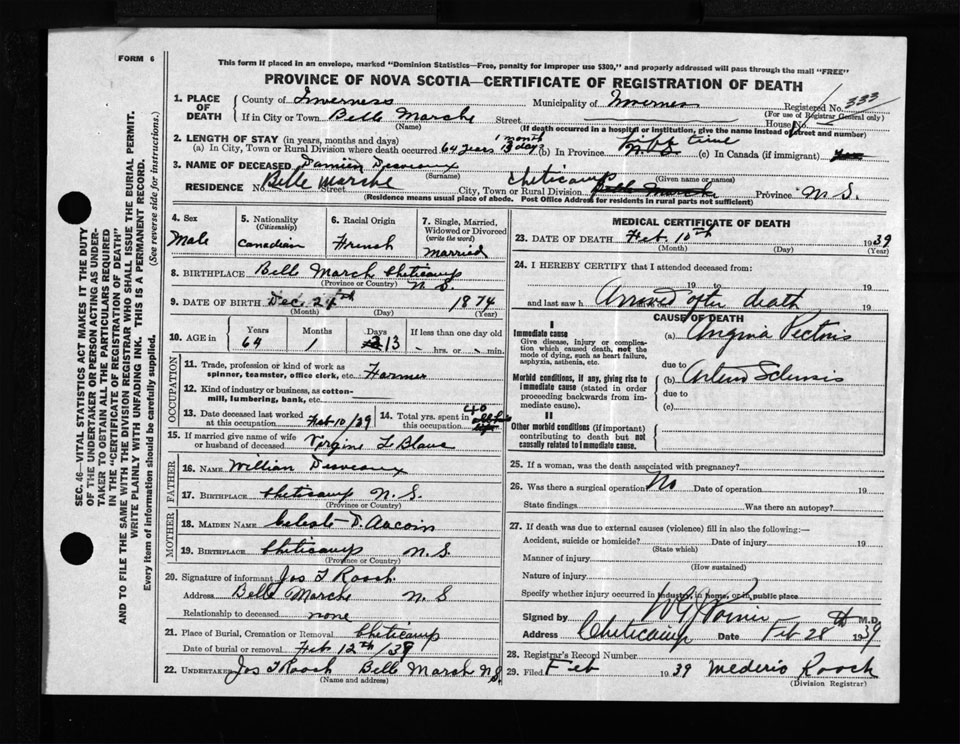 FORM 6
This form if placed in an envelope, marked "Dominion Statistics—Free, penalty for improper use $300," and properly addressed will pass through the mail "FREE"
PROVINCE OF NOVA SCOTIA—CERTIFICATE OF REGISTRATION OF DEATH
SEC. 46—VITAL STATISTICS ACT MAKES IT THE DUTY
OF THE UNDERTAKER OR PERSON ACTING AS UNDER-
TAKER TO OBTAIN ALL THE PARTICULARS REQUIRED
IN THE "CERTIFICATE OF REGISTRATION OF DEATH"
AND TO FILE THE SAME WITH THE DIVISION REGISTRAR WHO SHALL ISSUE THE BURIAL PERMIT.
WRITE PLAINLY WITH UNFADING INK. THIS IS A PERMANENT RECORD.
Every item of information should be carefully supplied. (See reverse side for instructions.)
1. PLACE OF DEATH County of Inverness Municipality of Inverness Registered No. 333
(For use of Registrar General only)
If in City or Town Belle Marche Street House No.
(Name) (If death occurred in a hospital or institution, give the name instead of street and number)
2. LENGTH OF STAY (in years, months and days)
(a) In City, Town or Rural Division where death occurred 64 years 1 month 13 days (b) In Province life time (c) In Canada (if immigrant)
3. NAME OF DECEASED Damien Desveaux
(Surname) (Given name or names)
RESIDENCE No. Belle Marche Street City, Town or Rural Division Cheticamp Belle Marche Province N.S.
(Residence means usual place of abode. Post Office Address for residents in rural parts not sufficient)
4. Sex Male
5. Nationality (Citizenship) Canadian
6. Racial Origin French
7. Single, Married, Widowed or Divorced (write the word) Married
8. BIRTHPLACE Belle March Cheticamp N.S.
(Province or Country)
9. DATE OF BIRTH Dec. 24th 1874
(Month) (Day) (Year)
10. AGE in Years 64 Months 1 Days 13 If less than one day old hrs. or min.
OCCUPATION
11. Trade, profession or kind of work as spinner, teamster, office clerk, etc. Farmer
12. Kind of industry or business, as cotton-mill, lumbering, bank, etc.
13. Date deceased last worked at this occupation Feb 10/39
14. Total yrs. spent in this occupation 40
15. If married give name of wife or husband of deceased
FATHER
16. NAME William Desveaux
17. BIRTHPLACE Cheticamp N.S.
(Province or Country)
MOTHER
18. MAIDEN NAME Celeste D. Aucoin
19. BIRTHPLACE Cheticamp N.S.
(Province or Country)
20. Signature of informant Jos T Roach
Address Belle Marche N S
Relationship to deceased none
21. Place of Burial, Cremation or Removal Cheticamp
Date of burial or removal Feb 12th/39
22. UNDERTAKER Jos T Roach Belle March N S
(Name and address)
MEDICAL CERTIFICATE OF DEATH
23. DATE OF DEATH Feb. 10th 1939
(Month) (Day) (Year)
24. I HEREBY CERTIFY that I attended deceased from:
19 to 19
and last saw h Arrived after death 19
CAUSE OF DEATH
I
Immediate cause
Give disease, injury or complication which caused death, not the mode of dying, such as heart failure, asphyxia, asthenia, etc.
(a) Angina Pectoris
due to
Morbid conditions, if any, giving rise to immediate cause (stated in order proceeding backwards from immediate cause).
(b) Arterio Sclerosis
due to
(c)
II
Other morbid conditions (if important) contributing to death but not causally related to immediate cause.
25. If a woman, was the death associated with pregnancy?
26. Was there a surgical operation No Date of operation 19
State findings Was there an autopsy?
27. If death was due to external causes (violence) fill in also the following:—
Accident, suicide or homicide? Date of injury 19
(State which)
Manner of injury
(How sustained)
Nature of injury
Specify whether injury occurred in industry, in home, or in public place
Signed by M.D.
Address Cheticamp Date Feb 28th 1939
28. Registrar's Record Number
29. Filed Feb 1939 Mederic Roach
(Division Registrar)